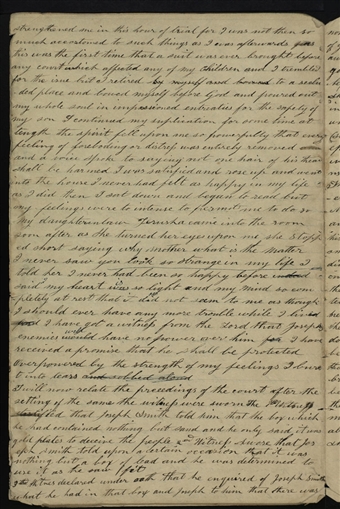 strengthened me in this hour of trial for I was not then so
much accustomed to such things as I was afterwards
this was the first time that a suit was ever brought before
any court which affected any of my children and I trembled
for the issue but I retired by myself and to a secluded
ded place and bowed myself before God and poured out
my whole soul in entreaties for the safety of
my son I continued my suplication for some time at
length the spirit fell upon me so powerfully that every
feeling of foreboding or distress was entirely removed
and a voice spoke to saying not one hair of his head
shall be harmed I was satisfied and rose up and went
into the house I never had felt as happy in my life
as I did then I sat down and began to read but
my feelings were to intense to permit me to do so
My daughterinlaw Jerusha came into the room
soon after as she turned her eyes upon me she stopp
ed short saying why mother what is the matter
I never saw you look so strange in my life I
told her I never had been so happy before
said my heart was so light and my mind so com
pletely at rest that it did not seem to me as though
I should ever have any more trouble while I
I have got a witness from the Lord that Josephs
enemies would have no power over him I have
received a promise that he shall be protected
Overpowered by the strength of my feelings I burst
into tears and
I will now relate the proceedings of the court after the
setting of the same the witnesses were sworn the
testified that Joseph Smith told him that the box which
he had contained nothing but sand and he only said it was
gold plates to deceive the people 2nd Witness swore that Jos
eph Smith told upon a certain occasion that it was
nothing but a box of lead and he was determined to
use it as he saw fit
3 witness declared under oath that he enquired of Joseph Smith
what he had in that box and Joseph to him that there was